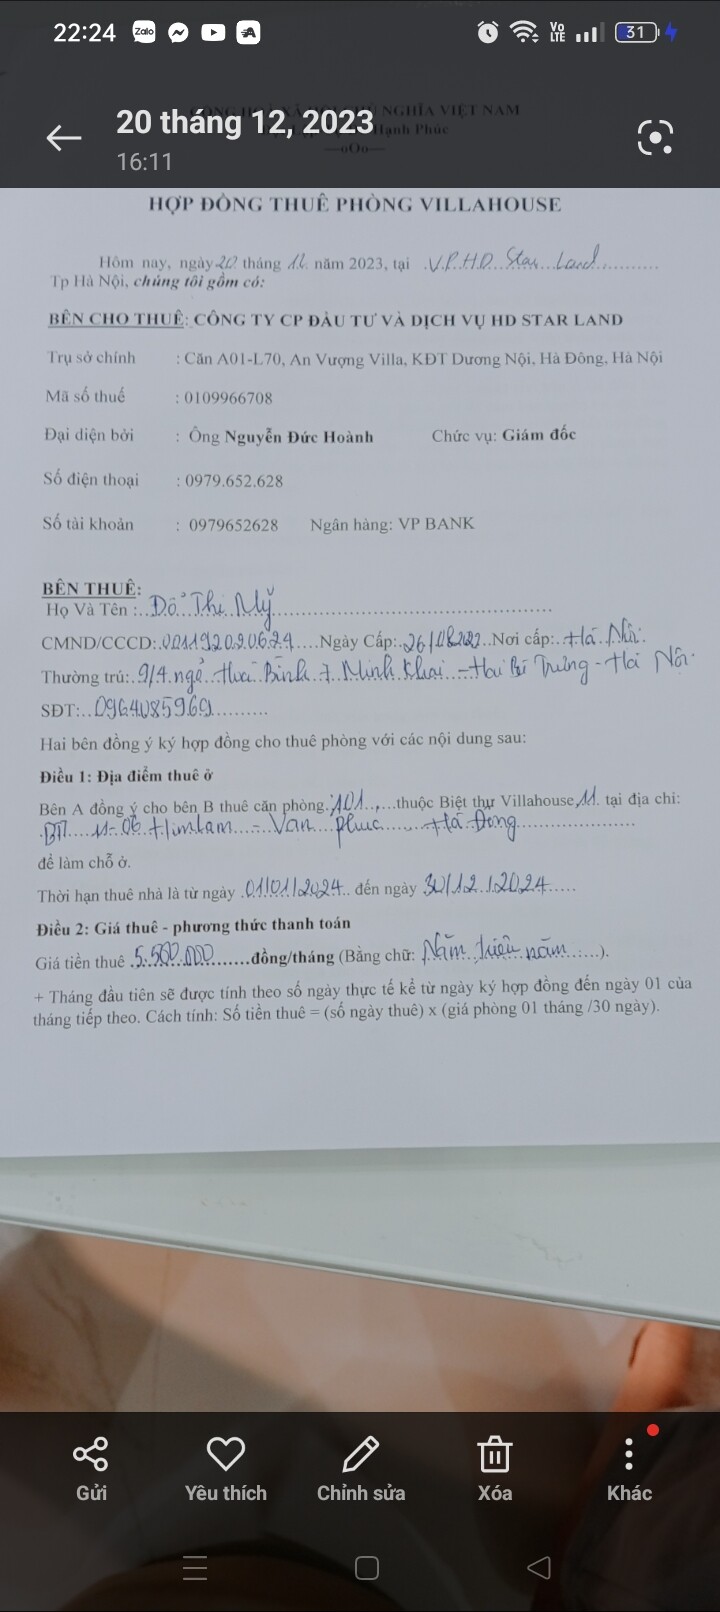 22:24 Zalo Vo LTE 31
CỘNG HOÀ XÃ HỘI CHỦ NGHĨA VIỆT NAM
20 tháng 12, 2023
Hạnh Phúc
—oOo—
16:11
HỢP ĐỒNG THUÊ PHÒNG VILLAHOUSE
Hôm nay, ngày 20 tháng 12 năm 2023, tại V.P.H.D Star Land
Tp Hà Nội, chúng tôi gồm có:
BÊN CHO THUÊ: CÔNG TY CP ĐẦU TƯ VÀ DỊCH VỤ HD STAR LAND
Trụ sở chính : Căn A01-L70, An Vượng Villa, KĐT Dương Nội, Hà Đông, Hà Nội
Mã số thuế : 0109966708
Đại diện bởi : Ông Nguyễn Đức Hoành Chức vụ: Giám đốc
Số điện thoại : 0979.652.628
Số tài khoản : 0979652628 Ngân hàng: VP BANK
BÊN THUÊ:
Họ Và Tên : Đỗ Thị Mỹ
CMND/CCCD: 001192020624 Ngày Cấp: Nơi cấp: Hà Nội
Thường trú: 9/4 ngõ Hoà Bình 7 Minh Khai - Hai Bà Trưng - Hà Nội
SĐT: 0964085969
Hai bên đồng ý ký hợp đồng cho thuê phòng với các nội dung sau:
Điều 1: Địa điểm thuê ở
Bên A đồng ý cho bên B thuê căn phòng: 101 thuộc Biệt thự Villahouse 11 tại địa chỉ:
BT 11-06 Himlam - Van phuc Hà Đong
để làm chỗ ở.
Thời hạn thuê nhà là từ ngày 01/01/2024 đến ngày 30/12/2024
Điều 2: Giá thuê - phương thức thanh toán
Giá tiền thuê 5.500.000 đồng/tháng (Bằng chữ: Năm triệu năm).
+ Tháng đầu tiên sẽ được tính theo số ngày thực tế kể từ ngày ký hợp đồng đến ngày 01 của
tháng tiếp theo. Cách tính: Số tiền thuê = (số ngày thuê) x (giá phòng 01 tháng /30 ngày).
Gửi Yêu thích Chỉnh sửa Xóa Khác